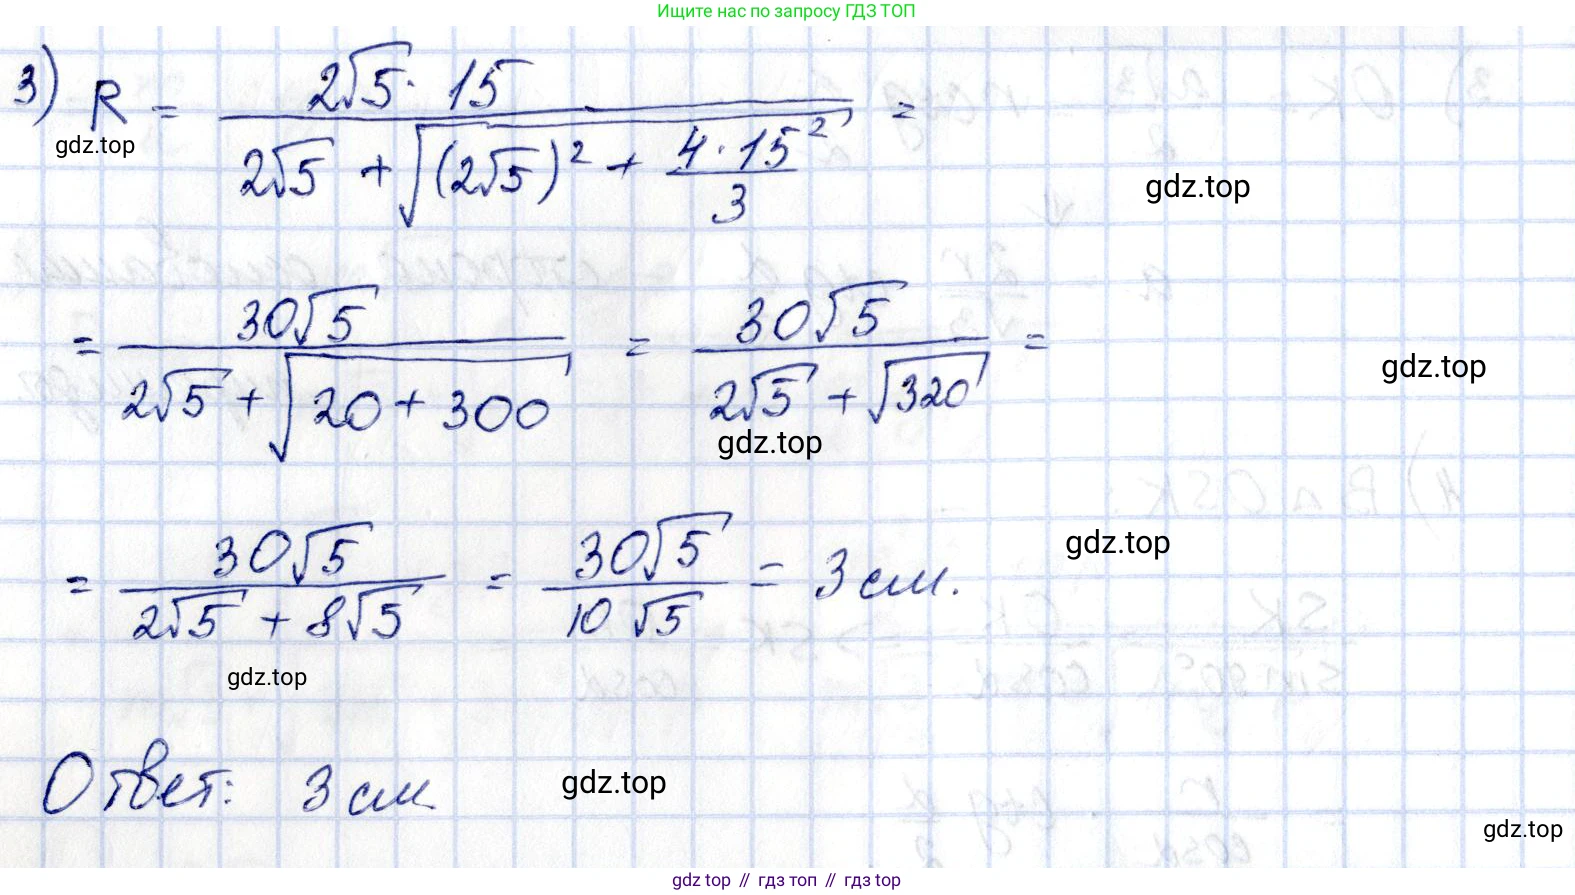 Ищите нас по запросу ГДЗ ТОП
3) R = 2√5 · 15 / (2√5 + √((2√5)² + 4 · 15² / 3)) =
gdz.top
gdz.top
= 30√5 / (2√5 + √(20 + 300)) = 30√5 / (2√5 + √320) =
gdz.top
gdz.top
= 30√5 / (2√5 + 8√5) = 30√5 / 10√5 = 3 см.
gdz.top
gdz.top
Ответ: 3 см.
gdz.top
gdz.top
gdz top // гдз топ // гдз top